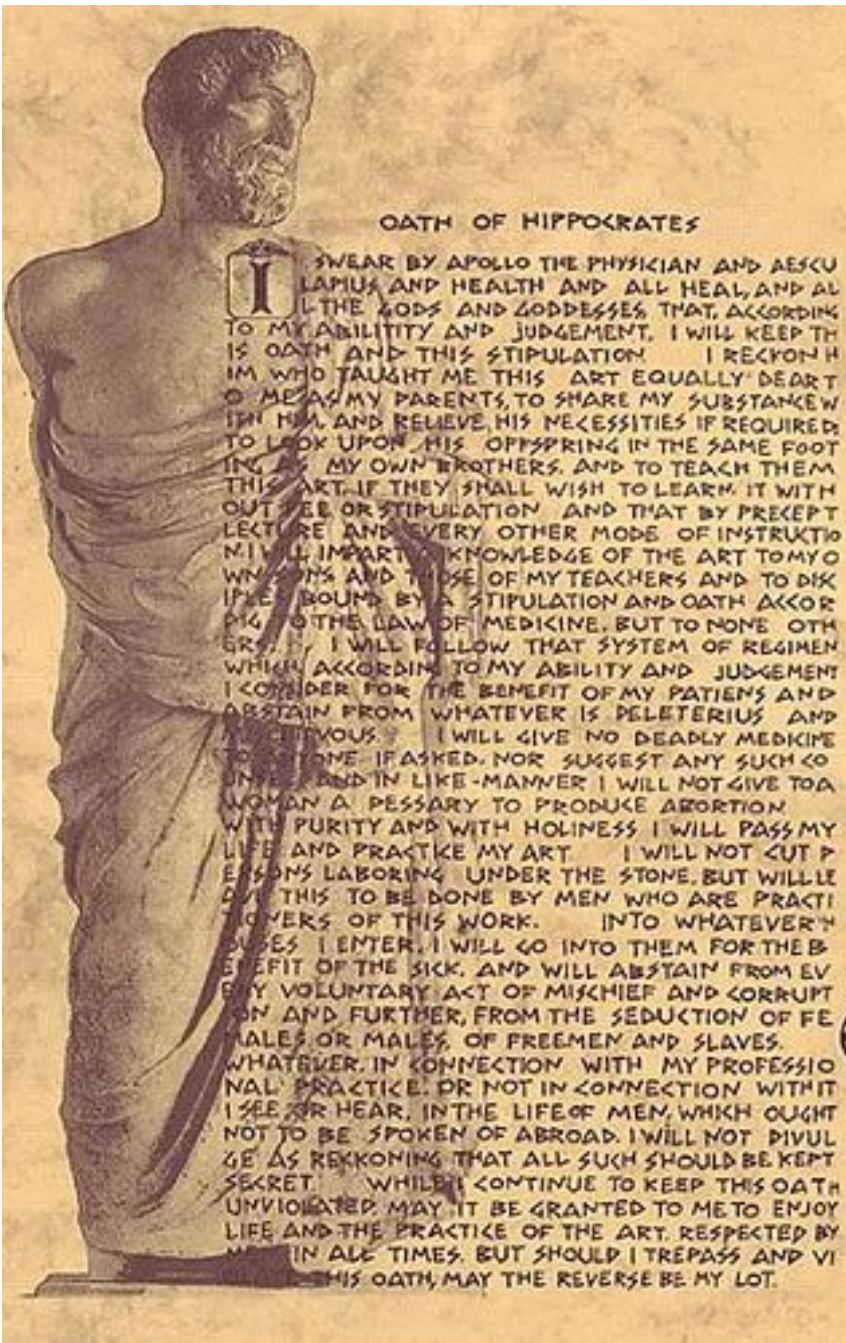 OATH OF HIPPOCRATES
I SWEAR BY APOLLO THE PHYSICIAN AND AESCU
LAPIUS AND HEALTH AND ALL HEAL, AND AL
L THE GODS AND GODDESSES THAT, ACCORDING
TO MY ABILITITY AND JUDGEMENT, I WILL KEEP TH
IS OATH AND THIS STIPULATION I RECKON H
IM WHO TAUGHT ME THIS ART EQUALLY DEAR T
O ME AS MY PARENTS, TO SHARE MY SUBSTANCE W
ITH HIM, AND RELIEVE HIS NECESSITIES IF REQUIRED:
TO LOOK UPON HIS OFFSPRING IN THE SAME FOOT
ING AS MY OWN BROTHERS. AND TO TEACH THEM
THIS ART. IF THEY SHALL WISH TO LEARN IT WITH
OUT FEE OR STIPULATION AND THAT BY PRECEPT
LECTURE AND EVERY OTHER MODE OF INSTRUCTIO
N. I WILL IMPART A KNOWLEDGE OF THE ART TO MY O
WN SONS AND THOSE OF MY TEACHERS AND TO DISC
IPLES BOUND BY A STIPULATION AND OATH ACCOR
DIG TO THE LAW OF MEDICINE, BUT TO NONE OTH
ERS. I WILL FOLLOW THAT SYSTEM OF REGIMEN
WHICH ACCORDING TO MY ABILITY AND JUDGEMENT
I CONSIDER FOR THE BENEFIT OF MY PATIENS AND
ABSTAIN FROM WHATEVER IS DELETERIUS AND
I WILL GIVE NO DEADLY MEDICINE
TO ANYONE IF ASKED. NOR SUGGEST ANY SUCH CO
AND IN LIKE-MANNER I WILL NOT GIVE TO A
WOMAN A PESSARY TO PRODUCE ABORTION
WITH PURITY AND WITH HOLINESS I WILL PASS MY
LIFE AND PRACTICE MY ART I WILL NOT CUT P
ERSONS LABORING UNDER THE STONE, BUT WILL LE
AVE THIS TO BE DONE BY MEN WHO ARE PRACTI
TIONERS OF THIS WORK. INTO WHATEVER H
OUSES I ENTER, I WILL GO INTO THEM FOR THE B
ENEFIT OF THE SICK, AND WILL ABSTAIN FROM EV
ERY VOLUNTARY ACT OF MISCHIEF AND CORRUPT
ION AND FURTHER, FROM THE SEDUCTION OF FE
MALES OR MALES, OF FREEMEN AND SLAVES.
WHATEVER, IN CONNECTION WITH MY PROFESSIO
NAL PRACTICE, OR NOT IN CONNECTION WITH IT
I SEE OR HEAR, IN THE LIFE OF MEN, WHICH OUGHT
NOT TO BE SPOKEN OF ABROAD, I WILL NOT DIVUL
GE AS REKKONING THAT ALL SUCH SHOULD BE KEPT
SECRET WHILE I CONTINUE TO KEEP THIS OATH
UNVIOLATED MAY IT BE GRANTED TO ME TO ENJOY
LIFE AND THE PRACTICE OF THE ART, RESPECTED BY
MEN IN ALL TIMES. BUT SHOULD I TREPASS AND VI
THIS OATH, MAY THE REVERSE BE MY LOT.